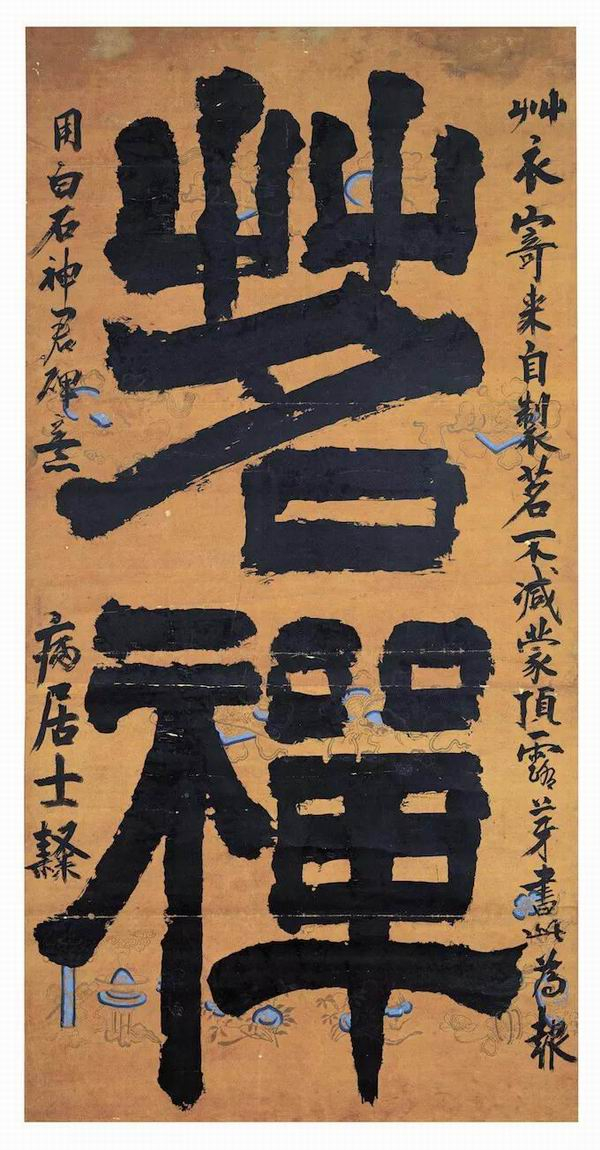 艸衣寄来自製茗不減蒙頂露芽書此為報
茗禪
用白石神君碑意 病居士隸